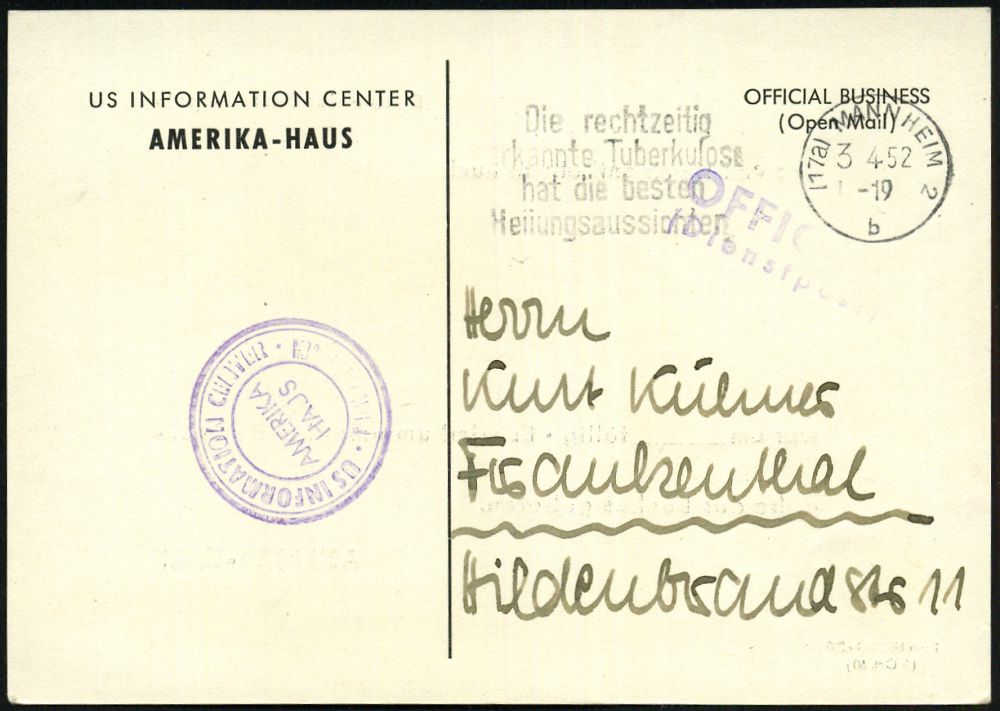 US INFORMATION CENTER
AMERIKA-HAUS
OFFICIAL BUSINESS
(Open Mail)
Die rechtzeitig
erkannte Tuberkulose
hat die besten
Heilungsaussichten
(17a) MANNHEIM 2
3 4.52
-19
b
OFFIC
(Dienstpost)
US INFORMATION CENTER
AMERIKA
HAUS
Herrn
Kurt
Frankenthal
Hildenbrandstr 11